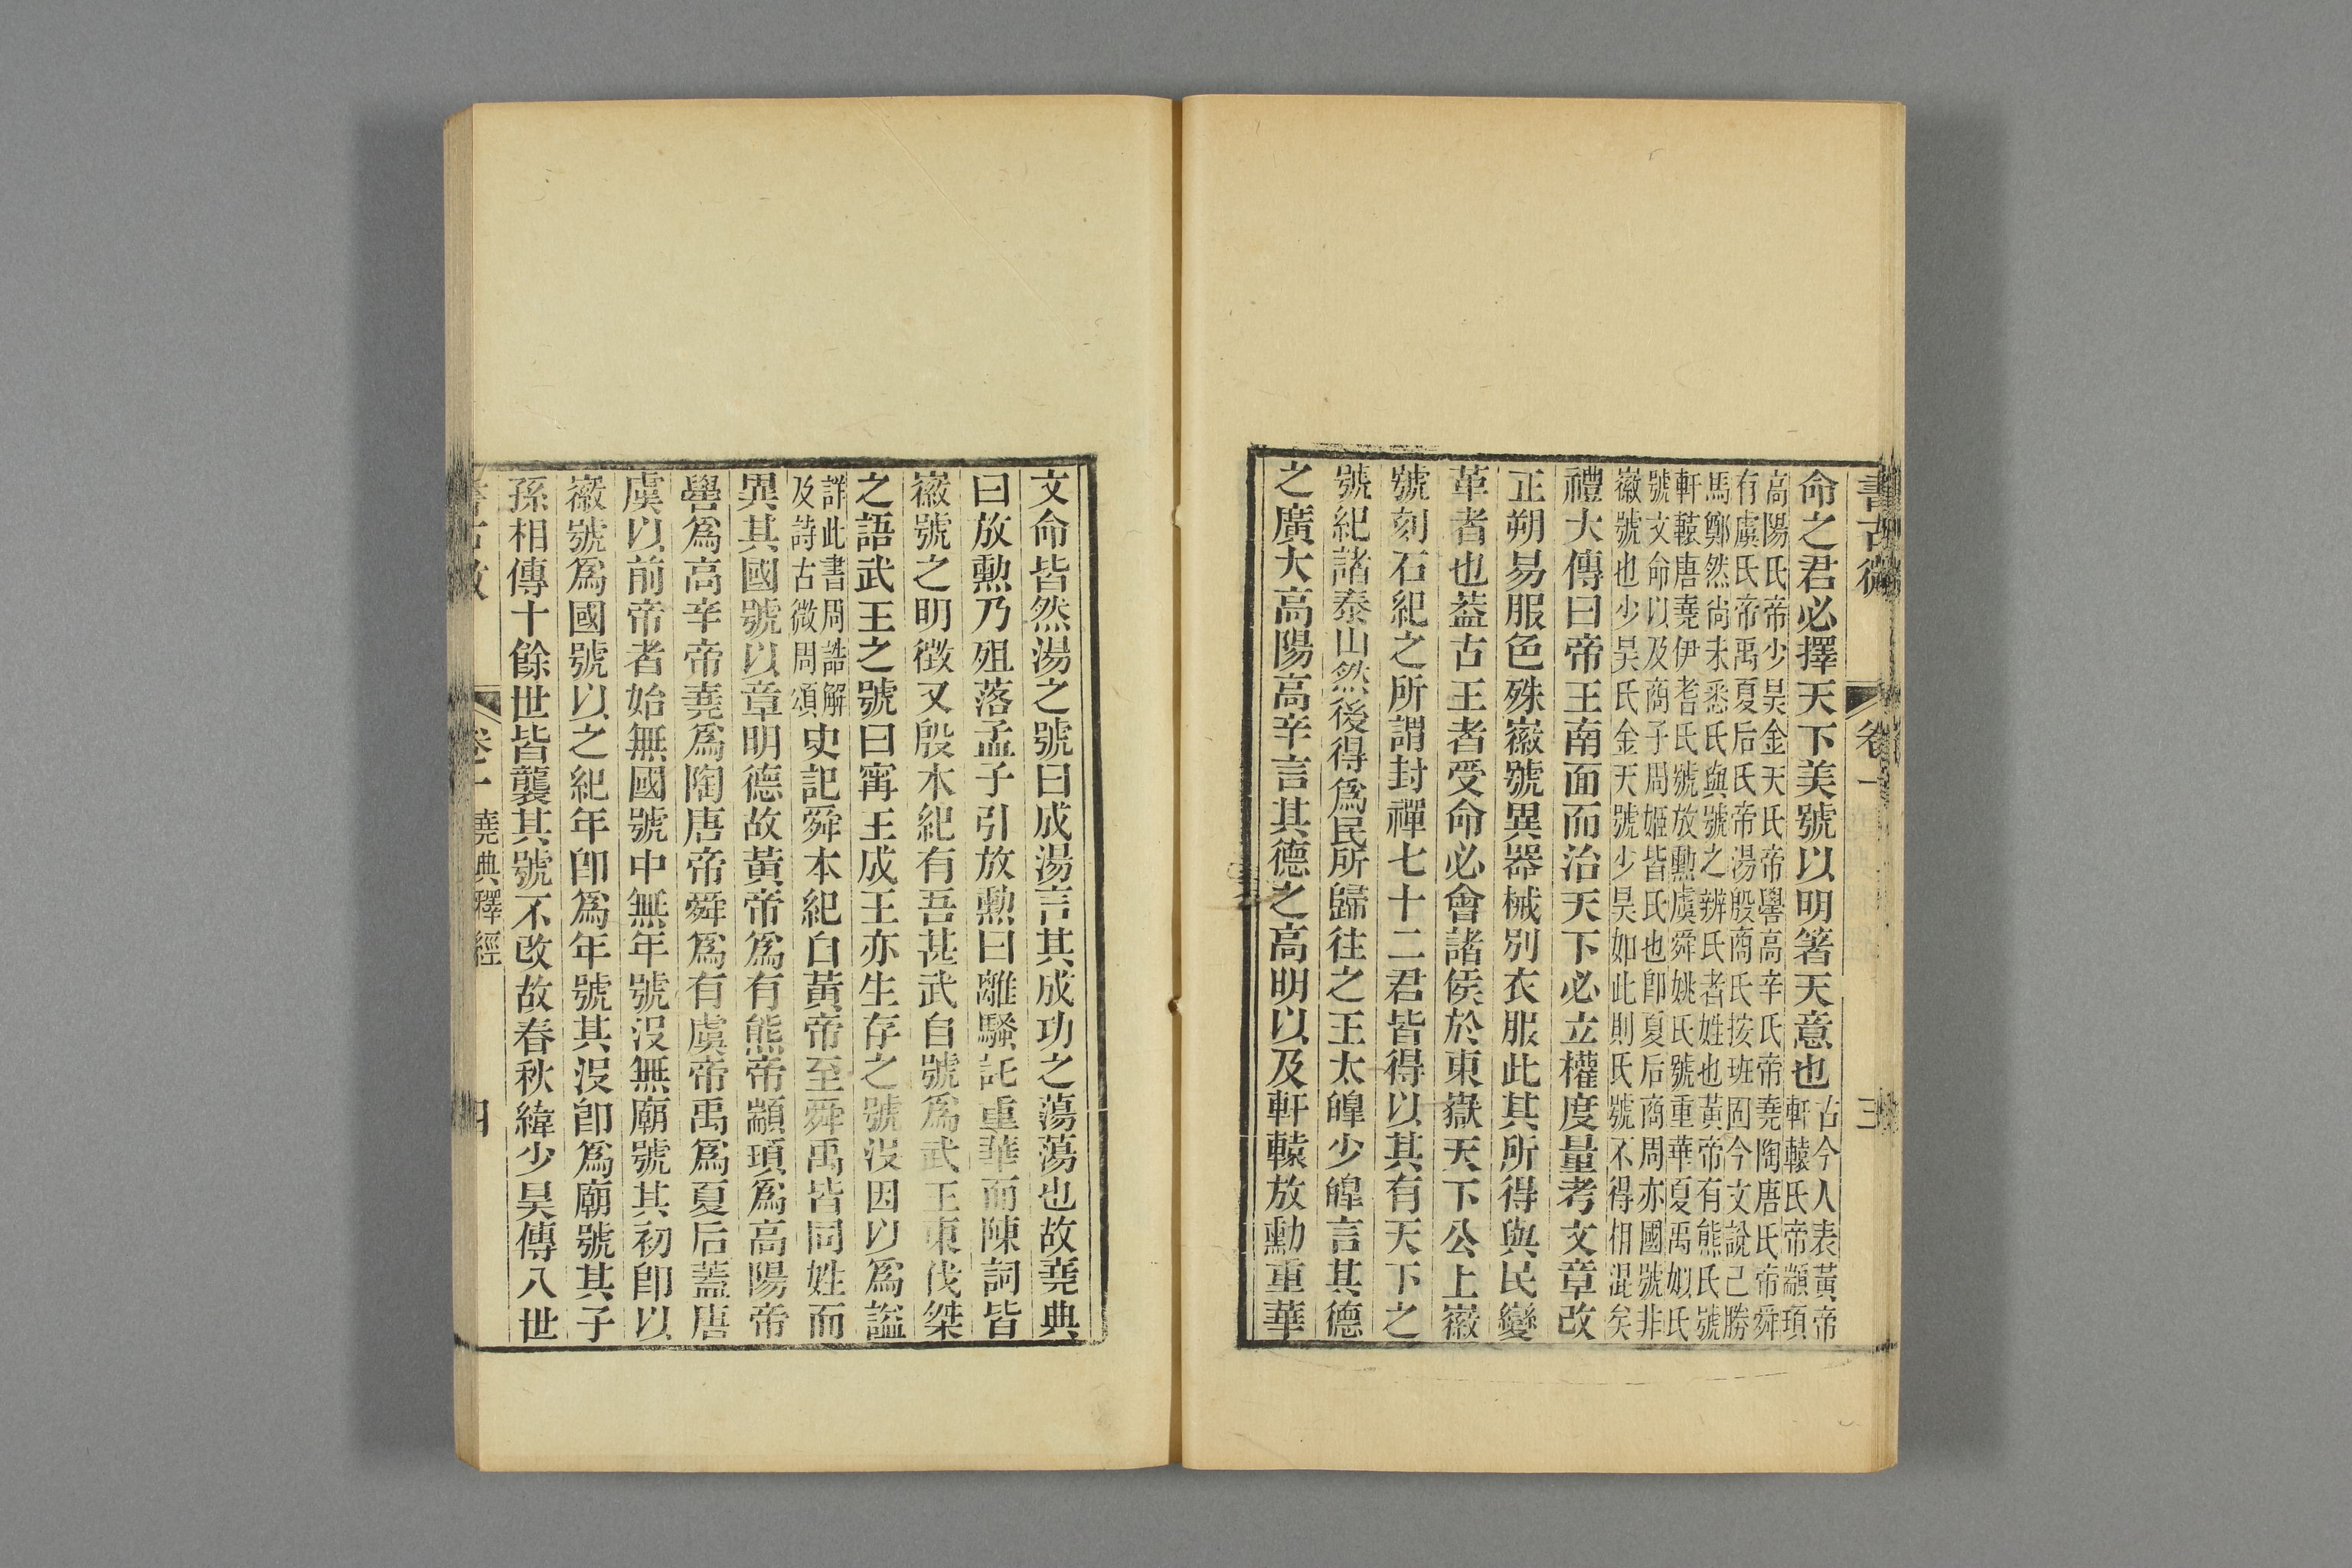 書古微 卷一 三
命之君必擇天下美號以明箸天意也
古今人表黃帝
軒轅氏帝顓頊
高陽氏帝少昊金天氏帝嚳高辛氏帝堯陶唐氏帝舜
有虞氏帝禹夏后氏帝湯殷商氏按班固今文說己勝
馬鄭然尚未悉氏與號之辨氏者姓也黃帝有熊氏號
軒轅唐堯伊耆氏號放勳虞舜姚氏號重華夏禹姒氏
號文命以及商子周姬皆氏也卽夏后商周亦國號非
徽號也少昊氏金天號少昊如此則氏號不得相混矣
禮大傳曰帝王南面而治天下必立權度量考文章改
正朔易服色殊徽號異器械別衣服此其所得與民變
革者也葢古王者受命必會諸侯於東嶽天下公上徽
號刻石紀之所謂封禪七十二君皆得以其有天下之
號紀諸泰山然後得爲民所歸往之王太皥少皥言其德
之廣大高陽高辛言其德之高明以及軒轅放勳重華
文命皆然湯之號曰成湯言其成功之蕩蕩也故堯典
曰放勳乃殂落孟子引放勳曰離騷託重華而陳詞皆
徽號之明徵又殷本紀有吾甚武自號爲武王東伐桀
之語武王之號曰甯王成王亦生存之號沒因以爲諡
詳此書周誥解
及詩古微周頌
史記舜本紀自黃帝至舜禹皆同姓而
異其國號以章明德故黃帝爲有熊帝顓頊爲高陽帝
嚳爲高辛帝堯爲陶唐帝舜爲有虞帝禹爲夏后蓋唐
虞以前帝者始無國號中無年號沒無廟號其初卽以
徽號爲國號以之紀年卽爲年號其沒卽爲廟號其子
孫相傳十餘世皆襲其號不改故春秋緯少昊傳八世
書古微 卷一 堯典釋經 四